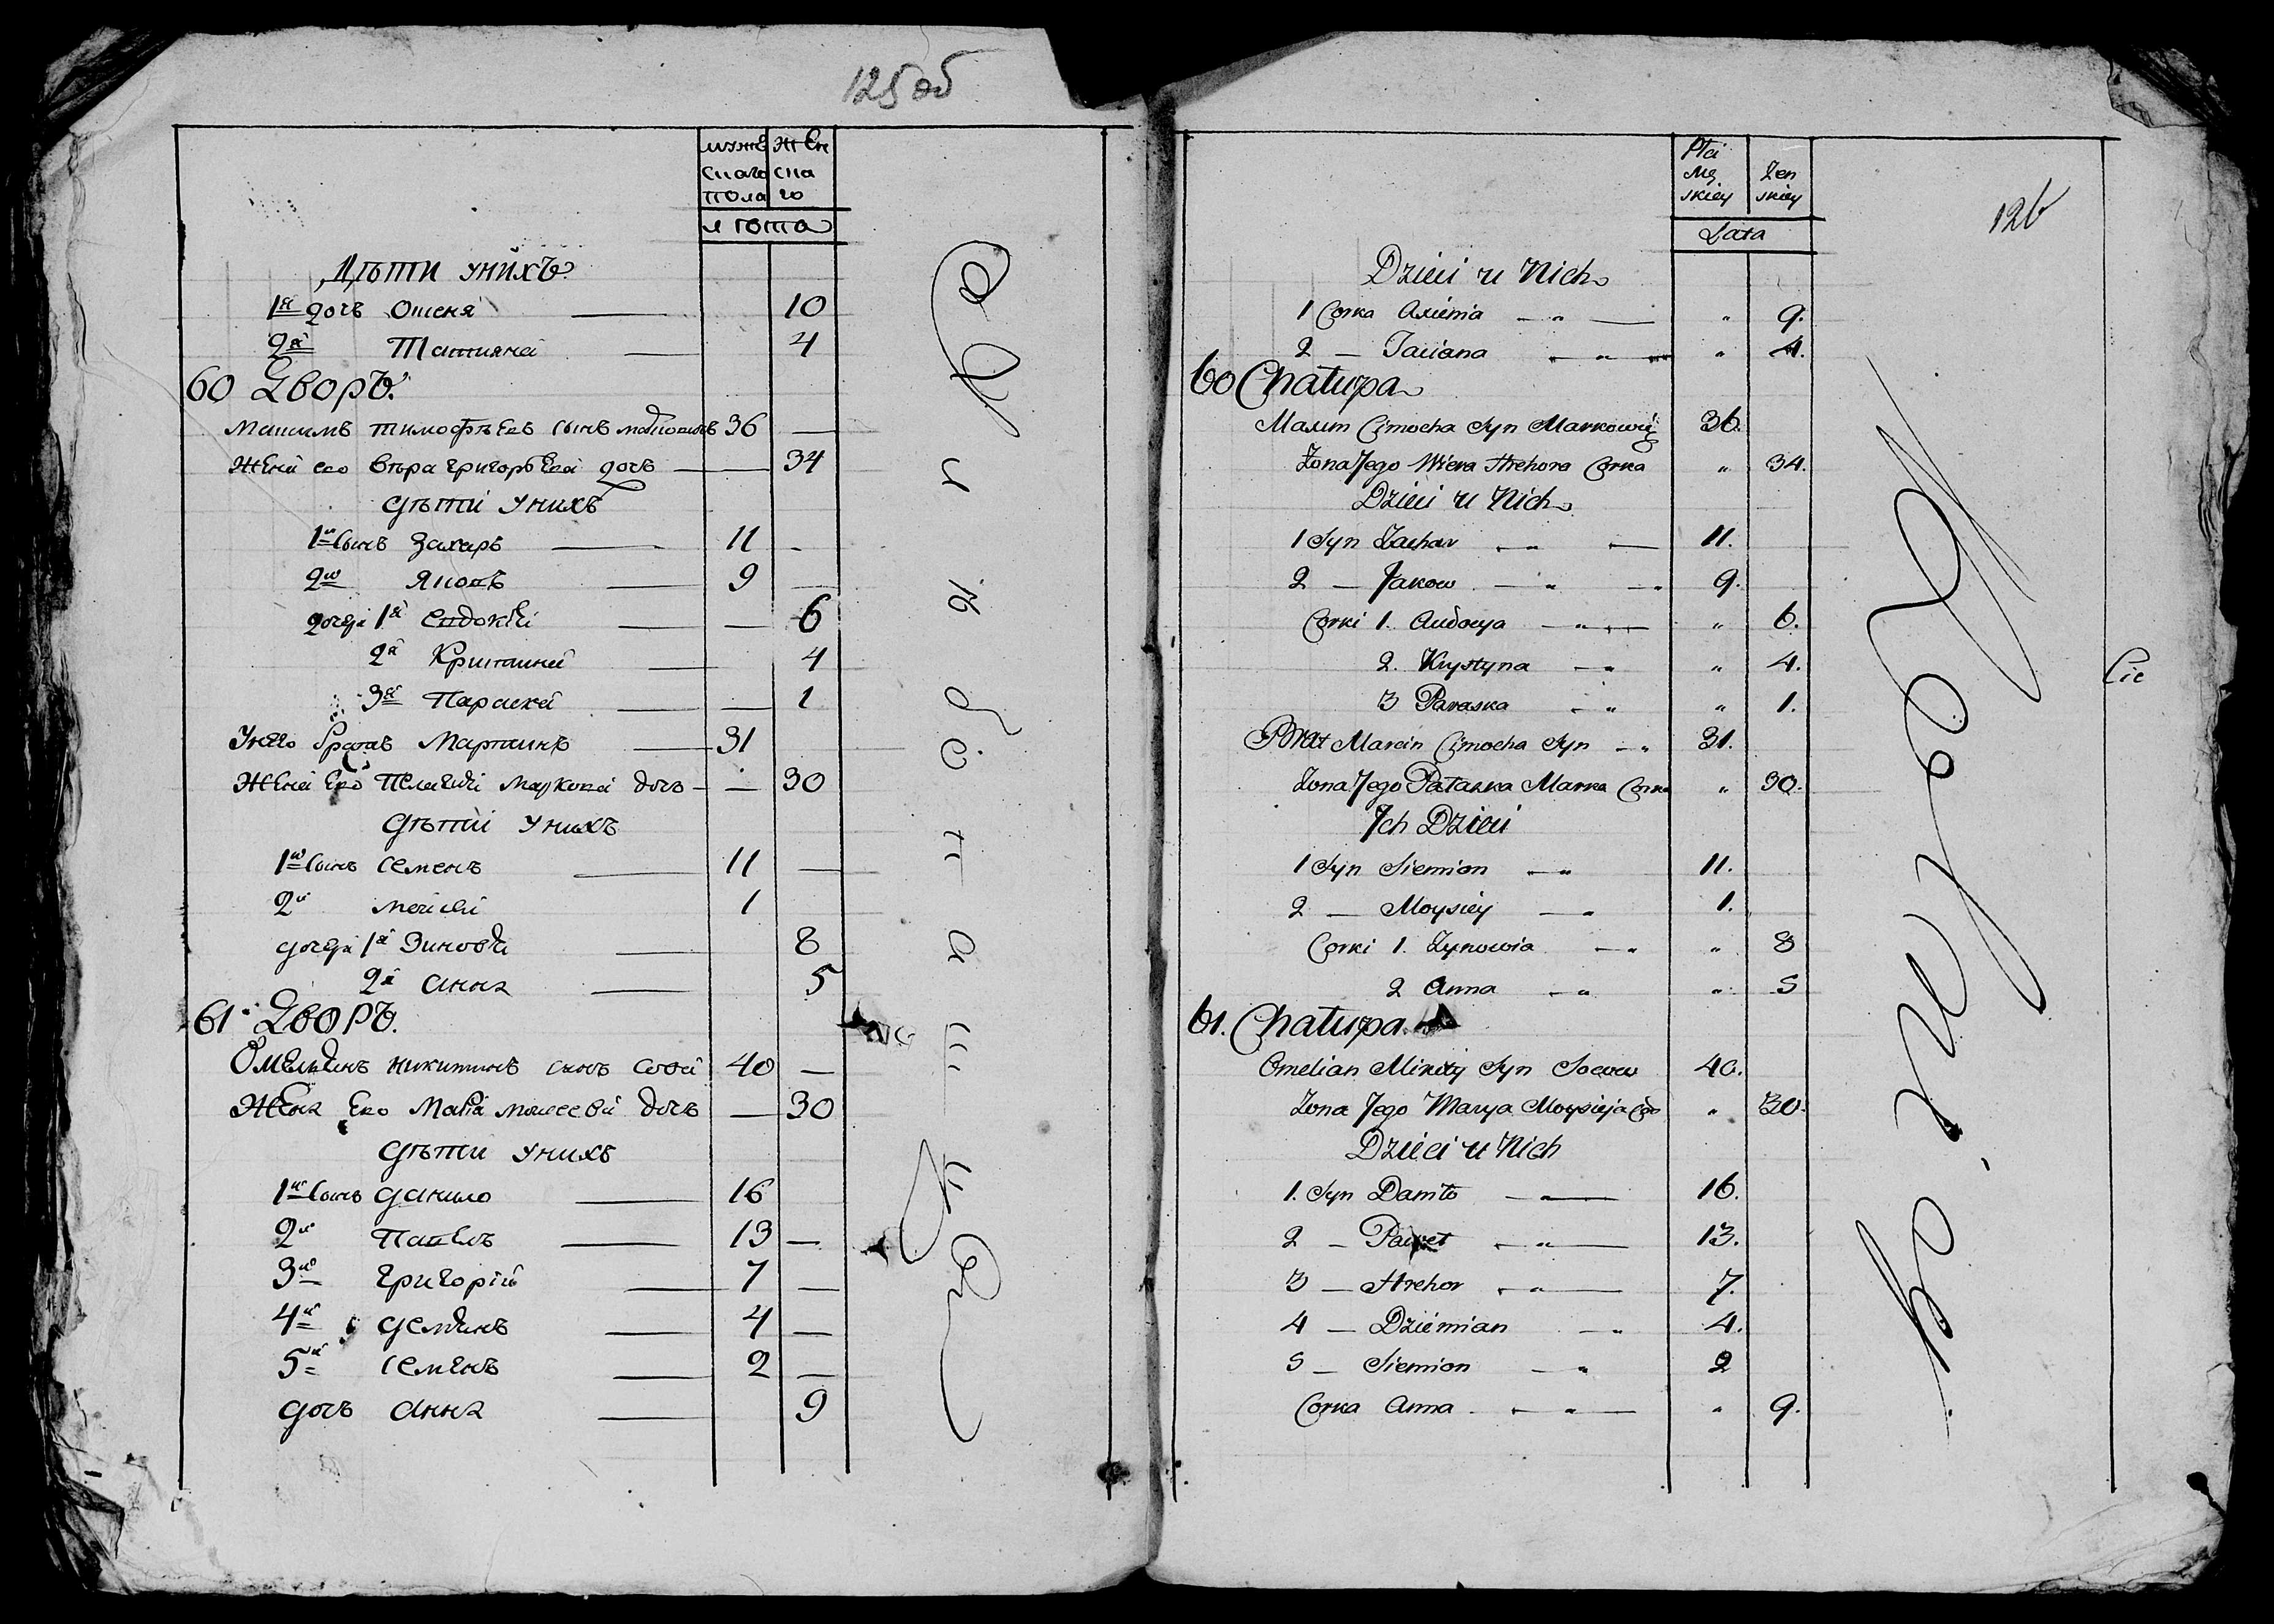 125 об
мужескаго пола
женскаго
лѣта
Дѣти унихъ
1я дочь Оксеня 10
2я Татияна 4
60 Дворъ.
Максимъ тимофѣевъ сынъ 36
Жена его вѣра григорьева дочь 34
дѣти унихъ
1й сынъ Захаръ 11
2й Яковъ 9
дочери 1я Евдокия 6
2я Кристина 4
3я Параска 1
Унего братъ Мартинъ 31
Жена Его Пелагия Маркова дочь 30
дѣти унихъ
1й сынъ семенъ 11
2й 1
дочери 1я Зиновия 8
2я анна 5
61 Дворъ.
Омельянъ никитинъ сынъ 40
Жена Его Мария моисеева дочь 30
дѣти унихъ
1й сынъ данило 16
2й Павелъ 13
3й григорій 7
4й демянъ 4
5й семенъ 2
дочь анна 9
126
Płci Męskiey
Żenskiey
Lata
Dzieci u Nich
1 Corka Axienia " 9.
2 — Taciana " 4.
60 Chałupa
Maxim Cimocha Syn Markowicz 36.
Żona Jego Wiera Hrehora Corka " 34.
Dzieci u Nich
1 Syn Zachar 11.
2 — Jakow 9.
Corki 1. Audocya " 6.
2. Krystyna " 4.
3 Paraska " 1.
Brat Marcin Cimocha Syn 31.
Żona Jego Pałaska Marka Corka " 30.
Ich Dzieci
1 Syn Siemion 11.
2 — Moysiey 1.
Corki 1. Zynowia " 8
2 Anna " 5
61. Chałupa
Omelian Mikity Syn 40.
Żona Jego Marya Moysieja Cor " 30.
Dzieci u Nich
1. Syn Daniło 16.
2 — Paweł 13.
3 — Hrehor 7.
4 — Dziemian 4.
5 — Siemion 2
Corka Anna " 9.
Cie